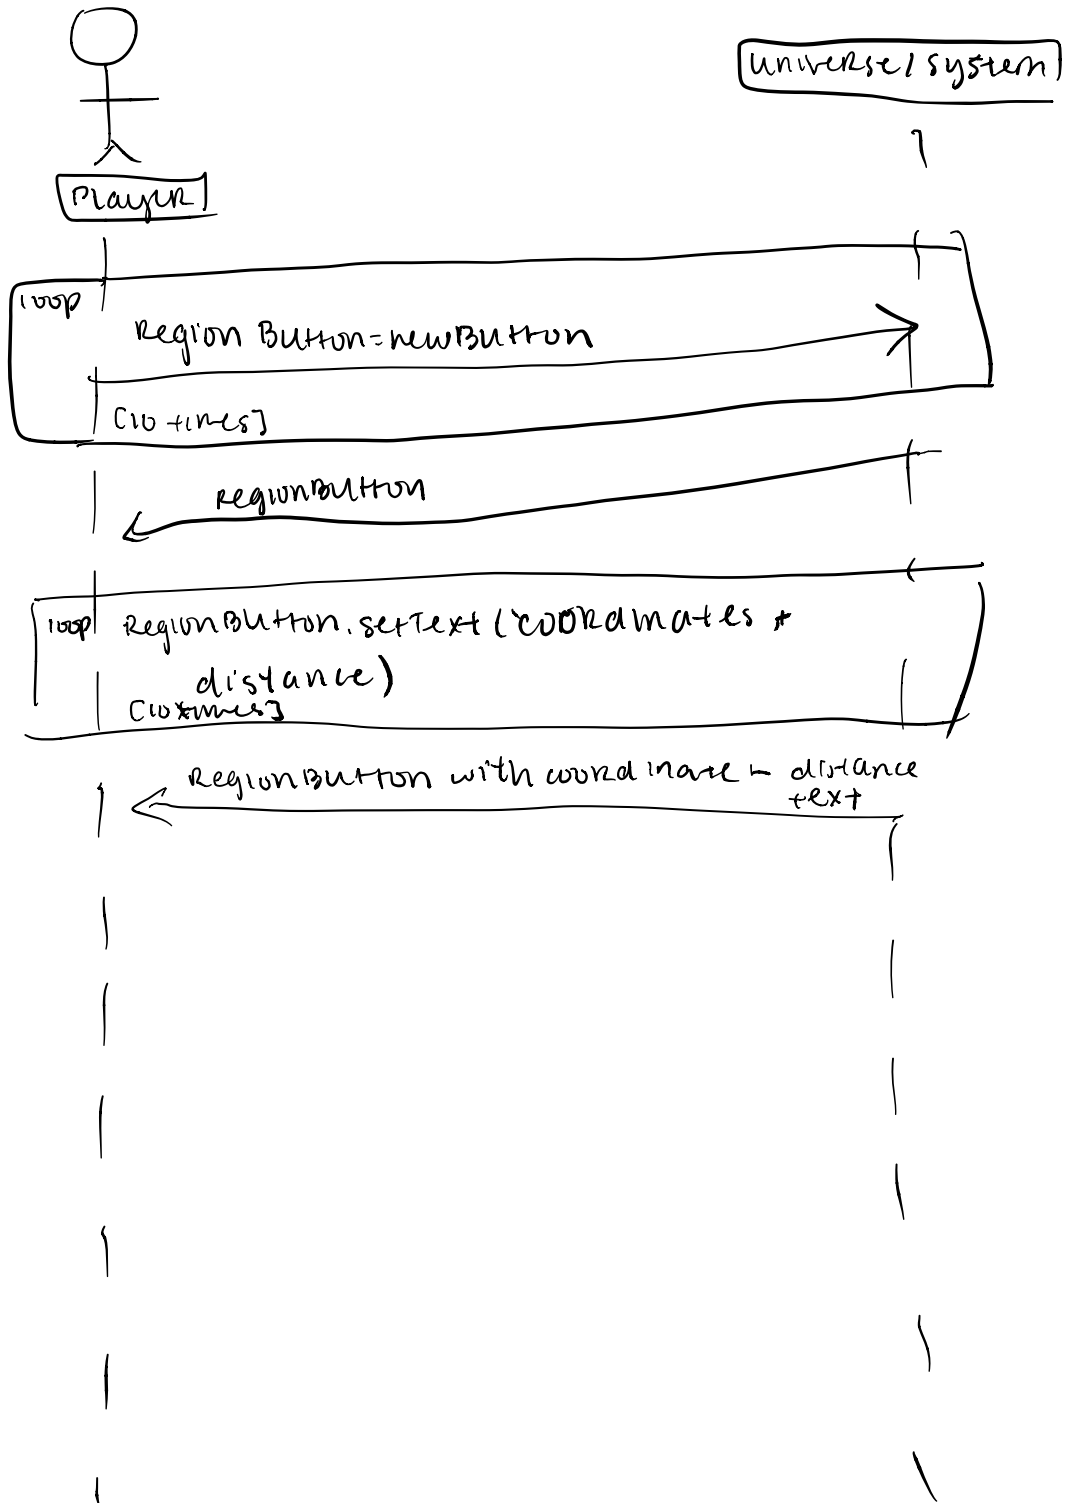 universe/system
Player
loop
Region Button=newButton
[10 times]
RegionButton
loop
RegionButton.setText(coordinates +
distance)
[10 times]
RegionButton with coordinate - distance
text